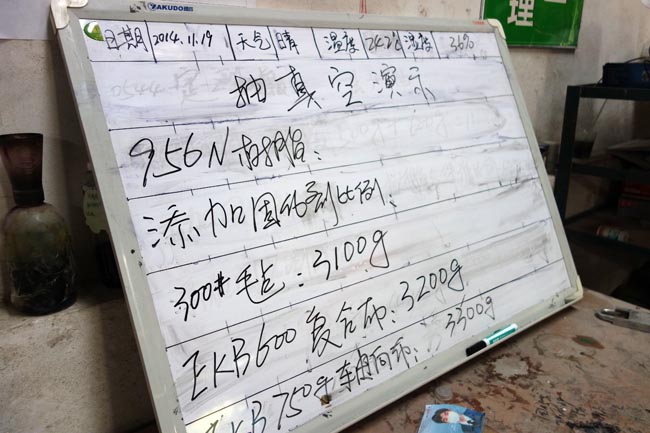 YAKUDO
理
日期 2014.11.19 天气 晴 温度 24.2℃ 湿度 36%
抽真空演示
956N 树脂:
添加固化剂比例:
300# 毛毡: 3100g
EKB600 复合布: 3200g
EKB 750g 轴向布: 3300g